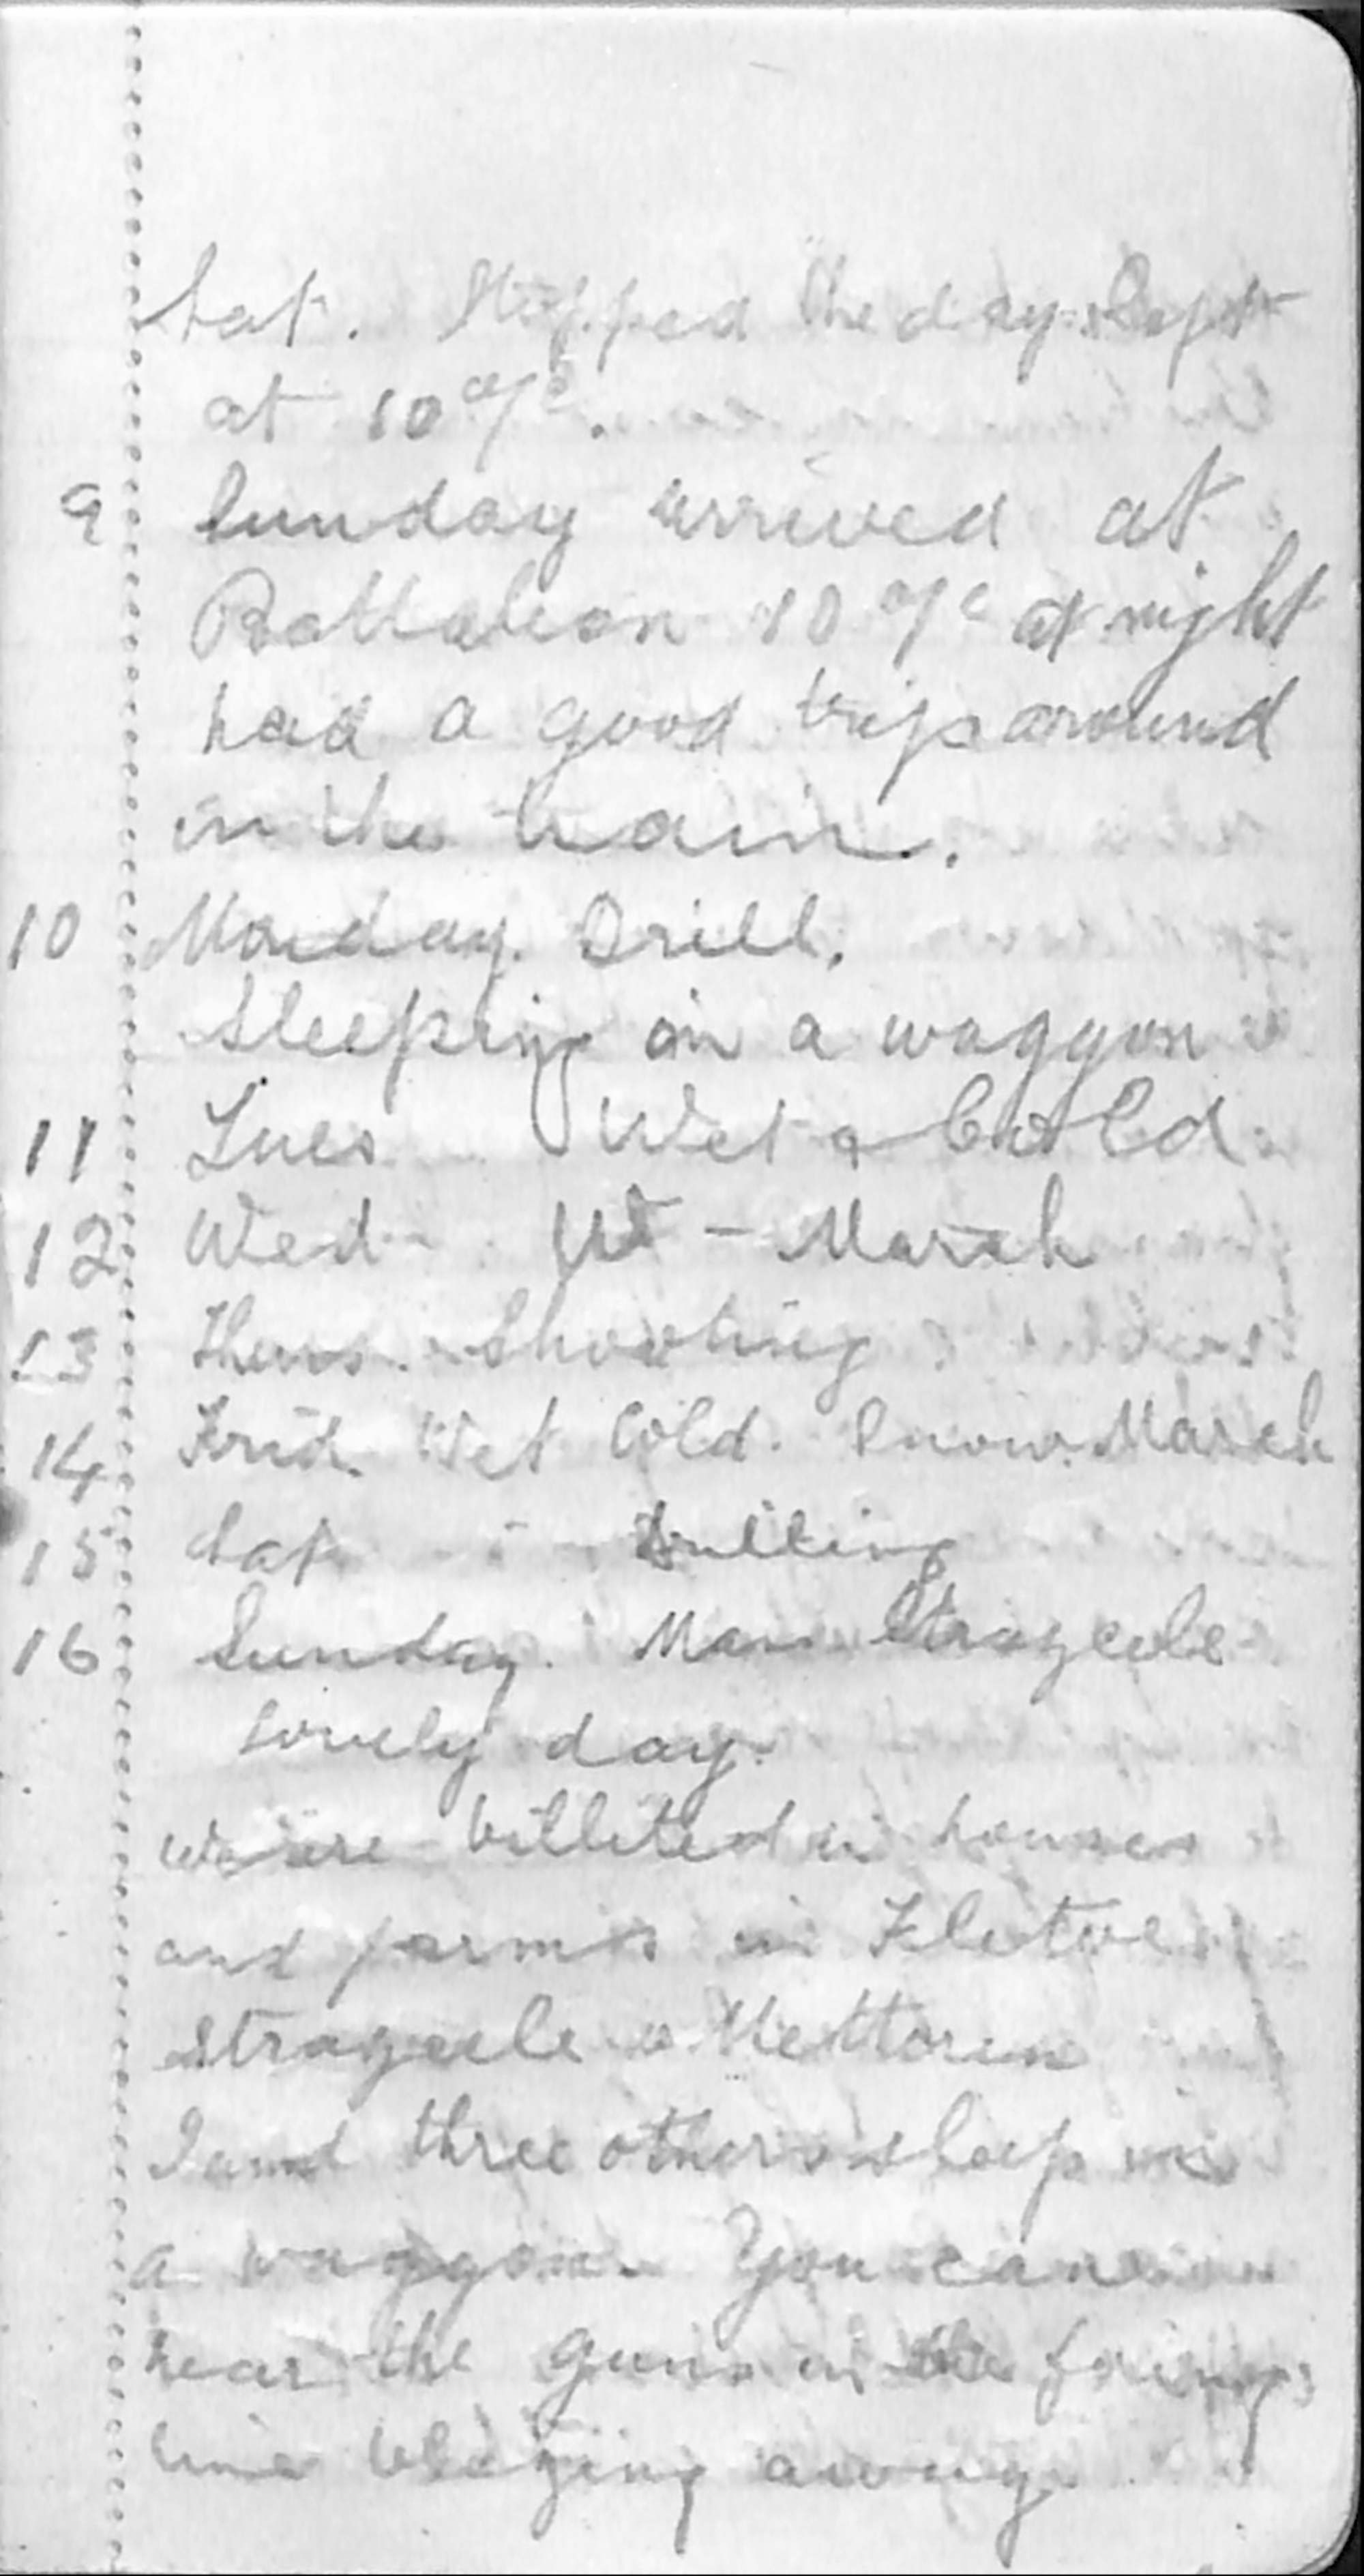 Sat. Stopped the day. Left
at 10 o/c.
9 Sunday arrived at
Battalion 10 o/c at night
had a good trip around
in the train.
10 Monday. Drill.
Sleeping in a waggon
11 Tues Wet & Cold.
12 Wed - Wet - March
13 Thurs. Shooting
14 Frid. Wet Cold. Snow. March
15 Sat - Drilling
16 Sunday. Strazeele
Lovely day.
We are billeted in houses
and farms in Fletre
Strazeele & Metteren
I and three others sleep in
a waggon. You can
hear the guns in the firing
line blazing away